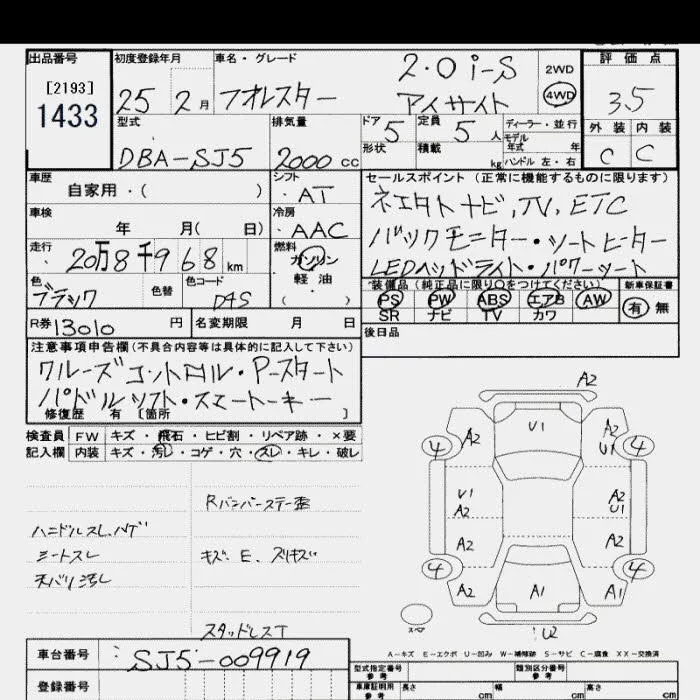 出品番号 初度登録年月 車名・グレード 評価点
[2193]
1433
25 2月 フオレスター
2.0i-S
アイサイト
2WD
4WD
3.5
外装 内装
C C
型式 排気量 ドア 5 定員 5人 ディーラー・並行
モデル年式 年
DBA-SJ5 2000cc 形状 積載 kg ハンドル 左・右
車歴 シフト セールスポイント (正常に機能するものに限ります)
自家用・( ) AT
車検 冷房
年 月( 日) AAC
走行 燃料
20万8千968km ガソリン
軽油
( )
色 色替 色コード
ブラック D4S
ナビ,TV,ETC
バックモニター・シートヒーター
LEDヘッドライト・パワーシート
装備品 (純正品に限り○をつけてください) 新車保証書
PS PW ABS エアB AW 有 無
SR ナビ TV カワ
R券 13010 円 名変期限 月 日
後日品
注意事項申告欄(不具合内容等は具体的に記入して下さい)
クルーズコントロール・Pースタート
パドルシフト・スマートキー
修復歴 有 〔箇所 〕
検査員 FW キズ・飛石・ヒビ割・リペア跡・×要
記入欄 内装 キズ・汚レ・コゲ・穴・スレ・キレ・破レ
Rバンパーステー歪
ハンドルスレ、ハゲ
シートスレ キズ、E、スリキズ
天バリ汚レ
スタッドレスT
A2
U1
A2 A2
U1
4 4
U1 A2
A2 U1
A2 A2
4 4
A2 A1 A1
U2
スペア
A-キズ E-エクボ U-凹み W-補修跡 S-サビ C-腐食 XX-交換済
車台番号 SJ5-009919
登録番号
型式指定番号 参考 類別区分番号 参考
車庫証明用 参考 長さ cm 幅 cm 高さ cm